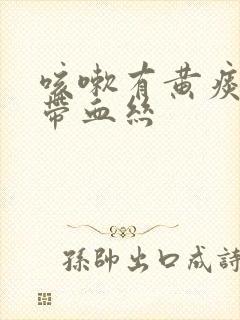 咳嗽有黄痰
带血丝
孫帥出口成詩